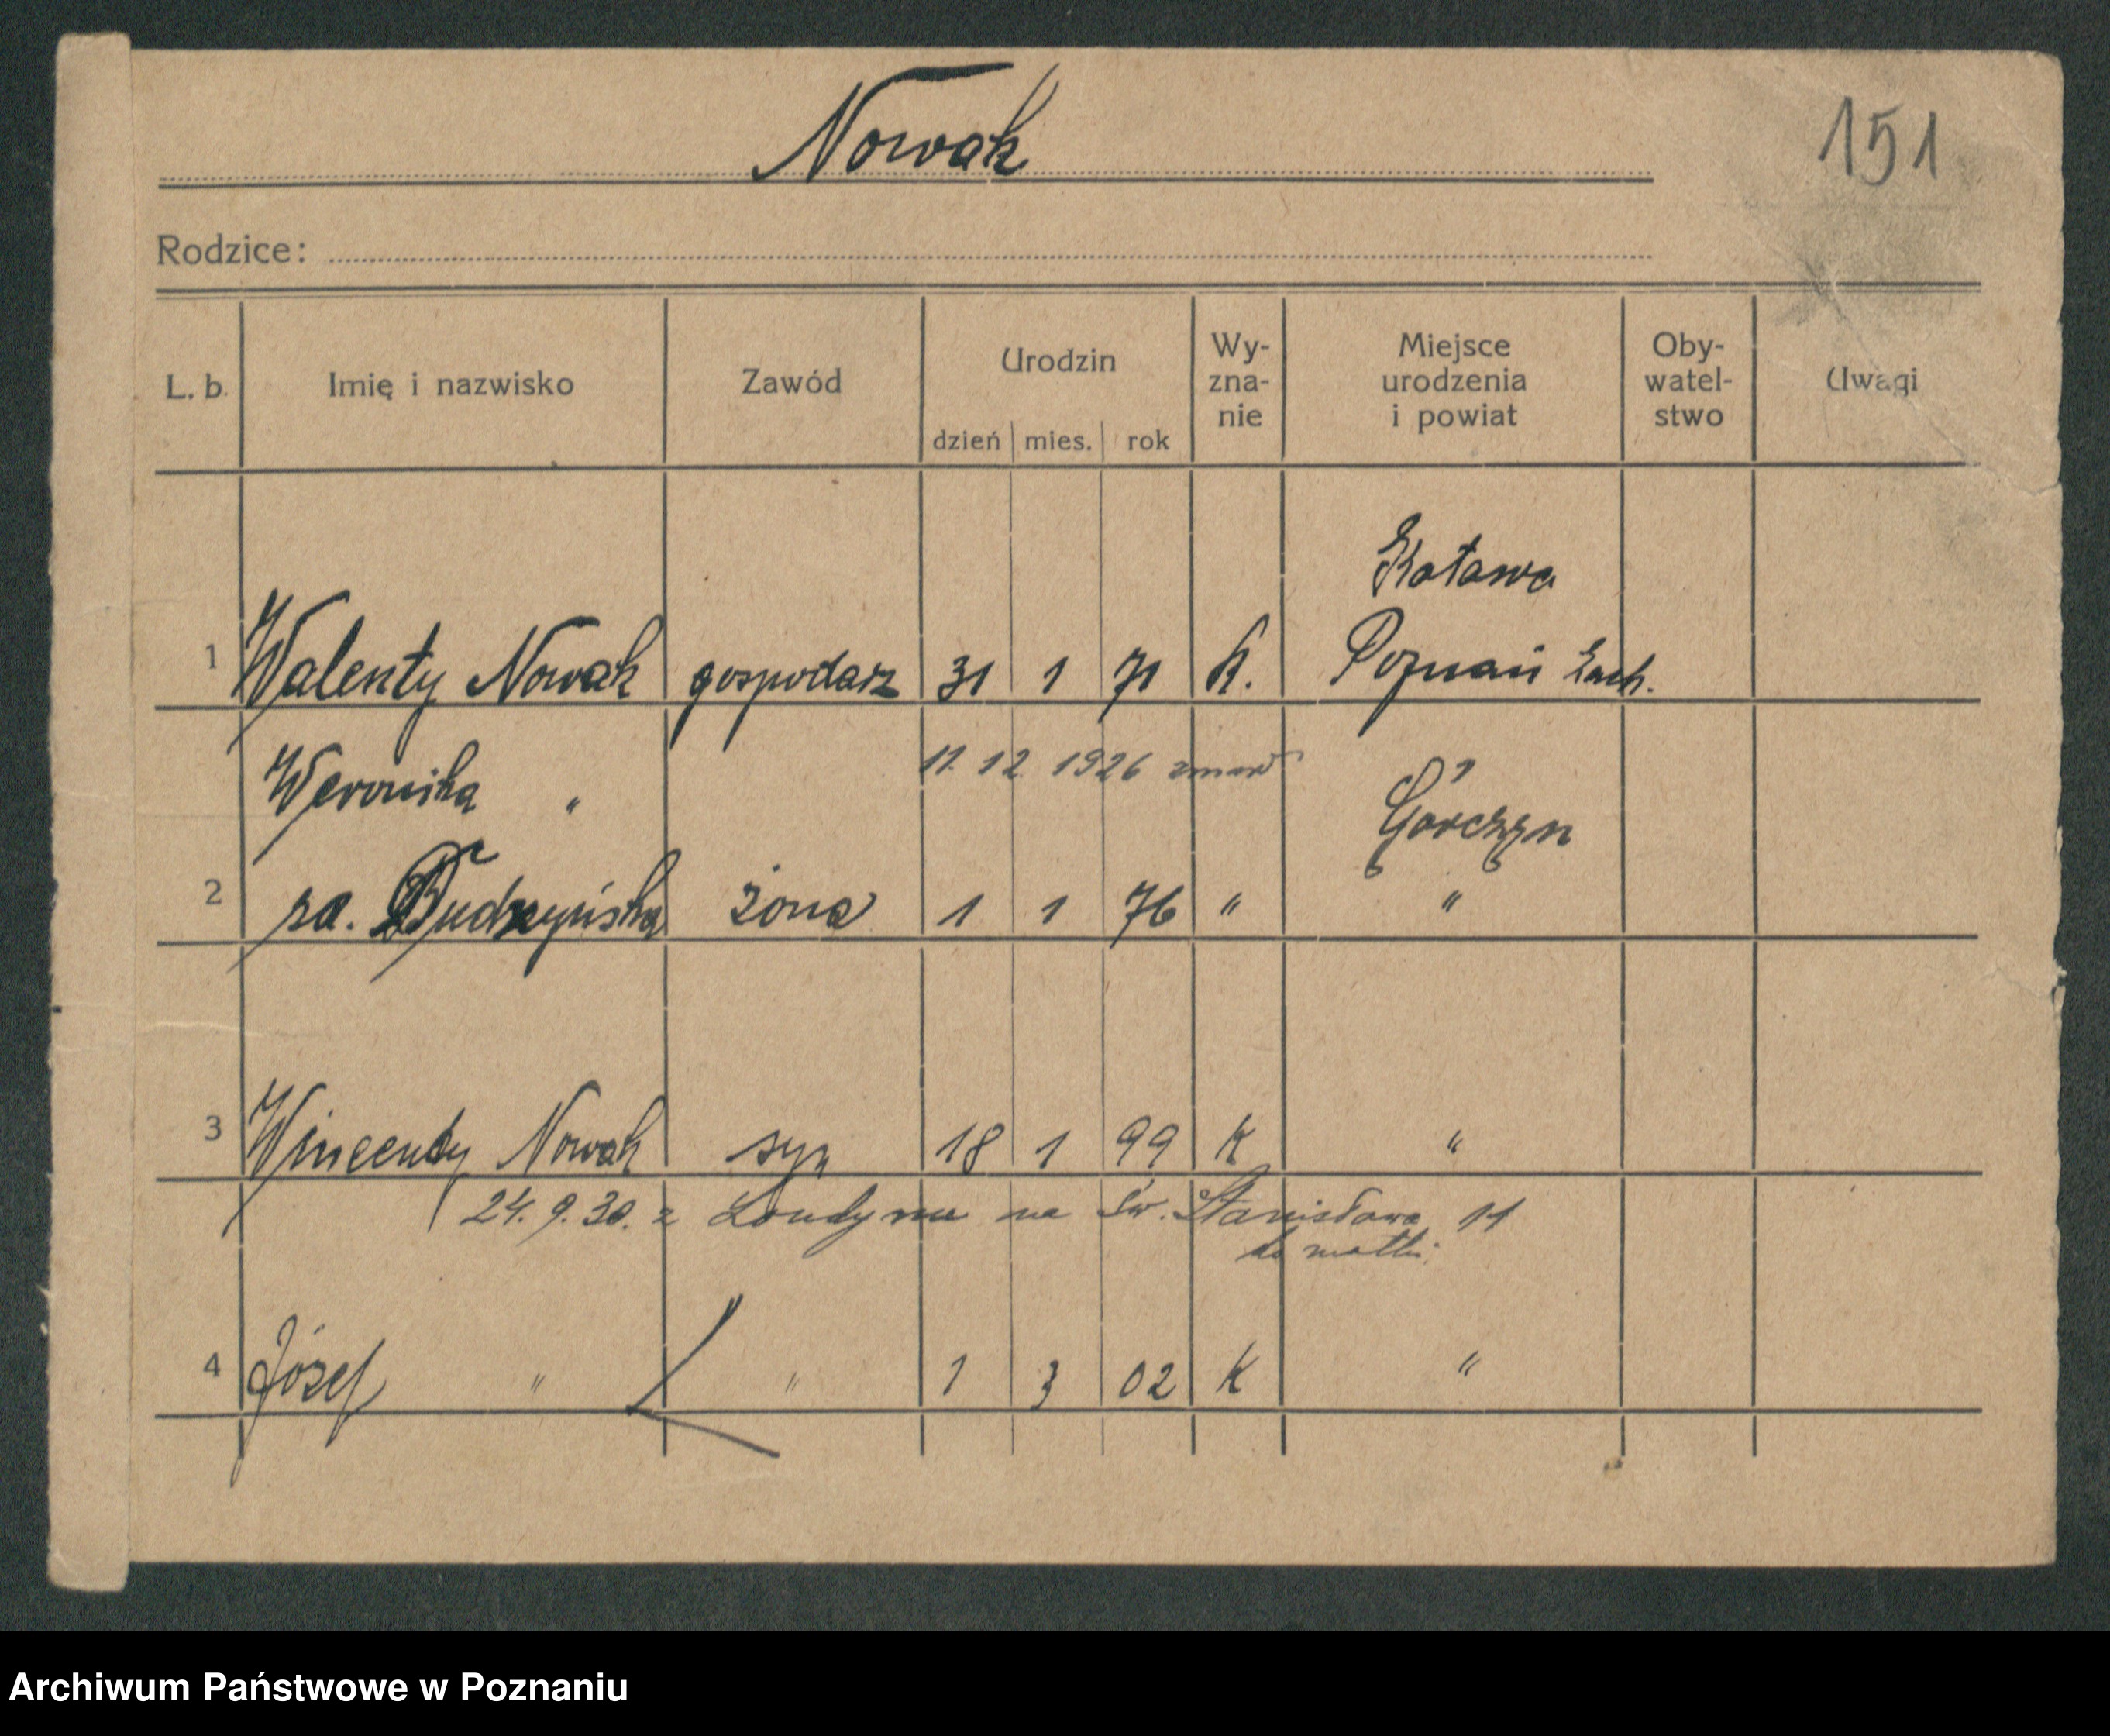 Nowak
151
Rodzice:
L. b. Imię i nazwisko Zawód Urodzin dzień mies. rok Wy-zna-nie Miejsce urodzenia i powiat Oby-watel-stwo Uwagi
1 Walenty Nowak gospodarz 31 1 71 K. Poznań Zach.
11. 12. 1926 zmarł
Weronika " Górczyn
2 Budzyńska żona 1 1 76 " "
3 Wincenty Nowak syn 18 1 99 K "
24. 9. 30. z Londynu na Św. Stanisława 11
do matki.
4 Józef " " 1 3 02 K "
Archiwum Państwowe w Poznaniu